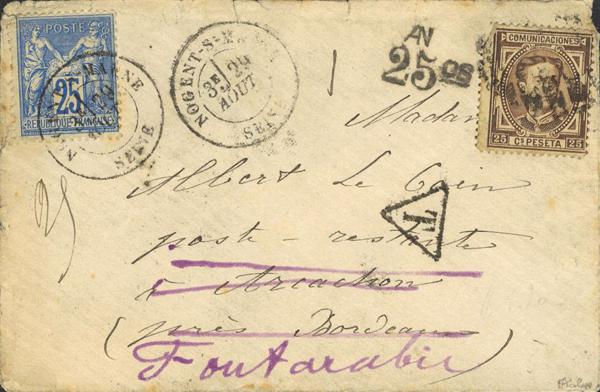 POSTE
25
REPUBLIQUE FRANÇAISE
SEINE
NOGENT-S-MA
3E 29
AOUT
SEINE
25 os
COMUNICACIONES
25 Cs PESETA 25
Madam
Albert Le
poste - restante
à Arcachon
(près Bordeaux)
Fontarabie
T
25